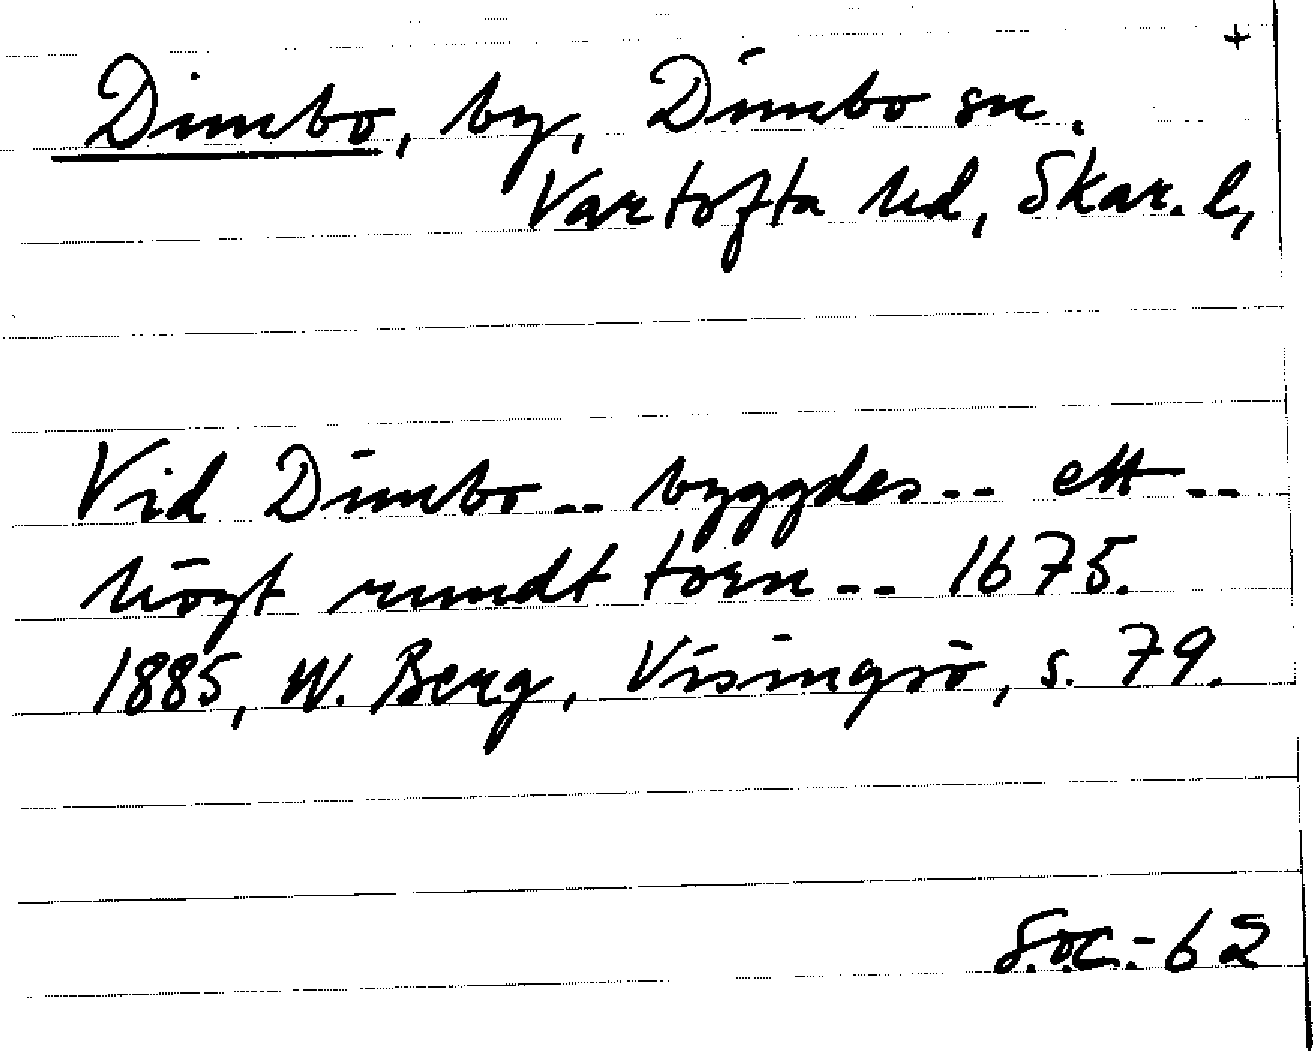 +
Dimbo, by, Dimbo sn.
Vartofta hd, Skar. l,
Vid Dimbo -- byggdes -- ett --
högt rundt torn -- 1675.
1885, W. Berg, Visingsö, s. 79.